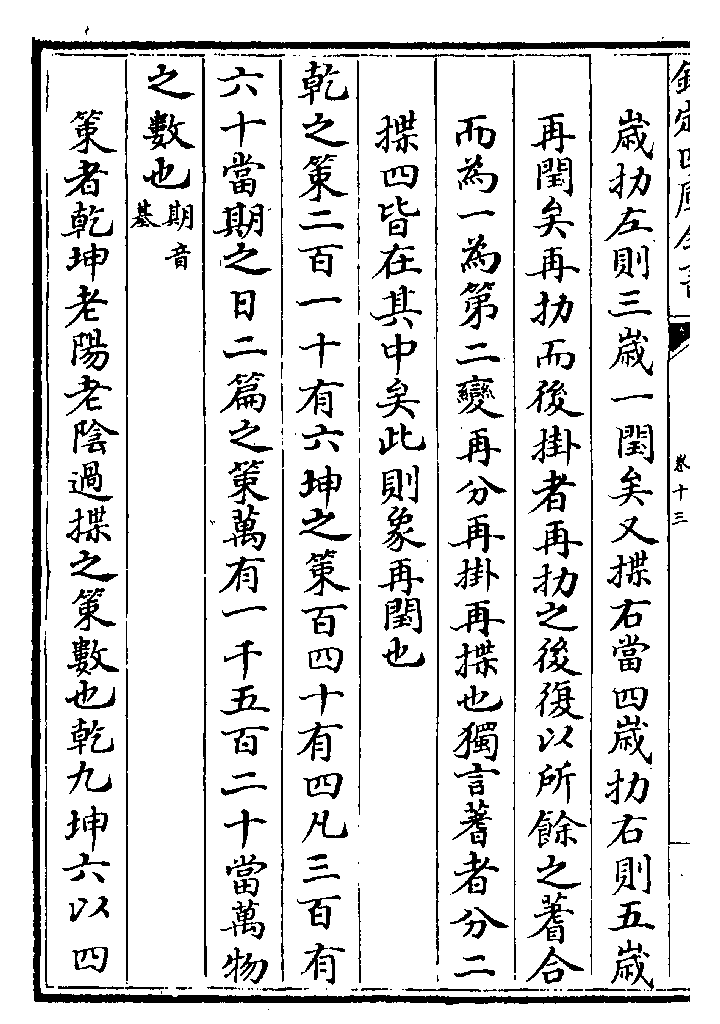 欽定四庫全書
卷十三
歳扐左則三歳一閏矣又揲右當四歳扐右則五歳
再閏矣再扐而後掛者再扐之後復以所餘之蓍合
而為一為第二變再分再掛再揲也獨言蓍者分二
揲四皆在其中矣此則象再閏也
乾之策二百一十有六坤之策百四十有四凡三百有
六十當期之日二篇之策萬有一千五百二十當萬物
之數也期音朞
策者乾坤老陽老陰過揲之策數也乾九坤六以四